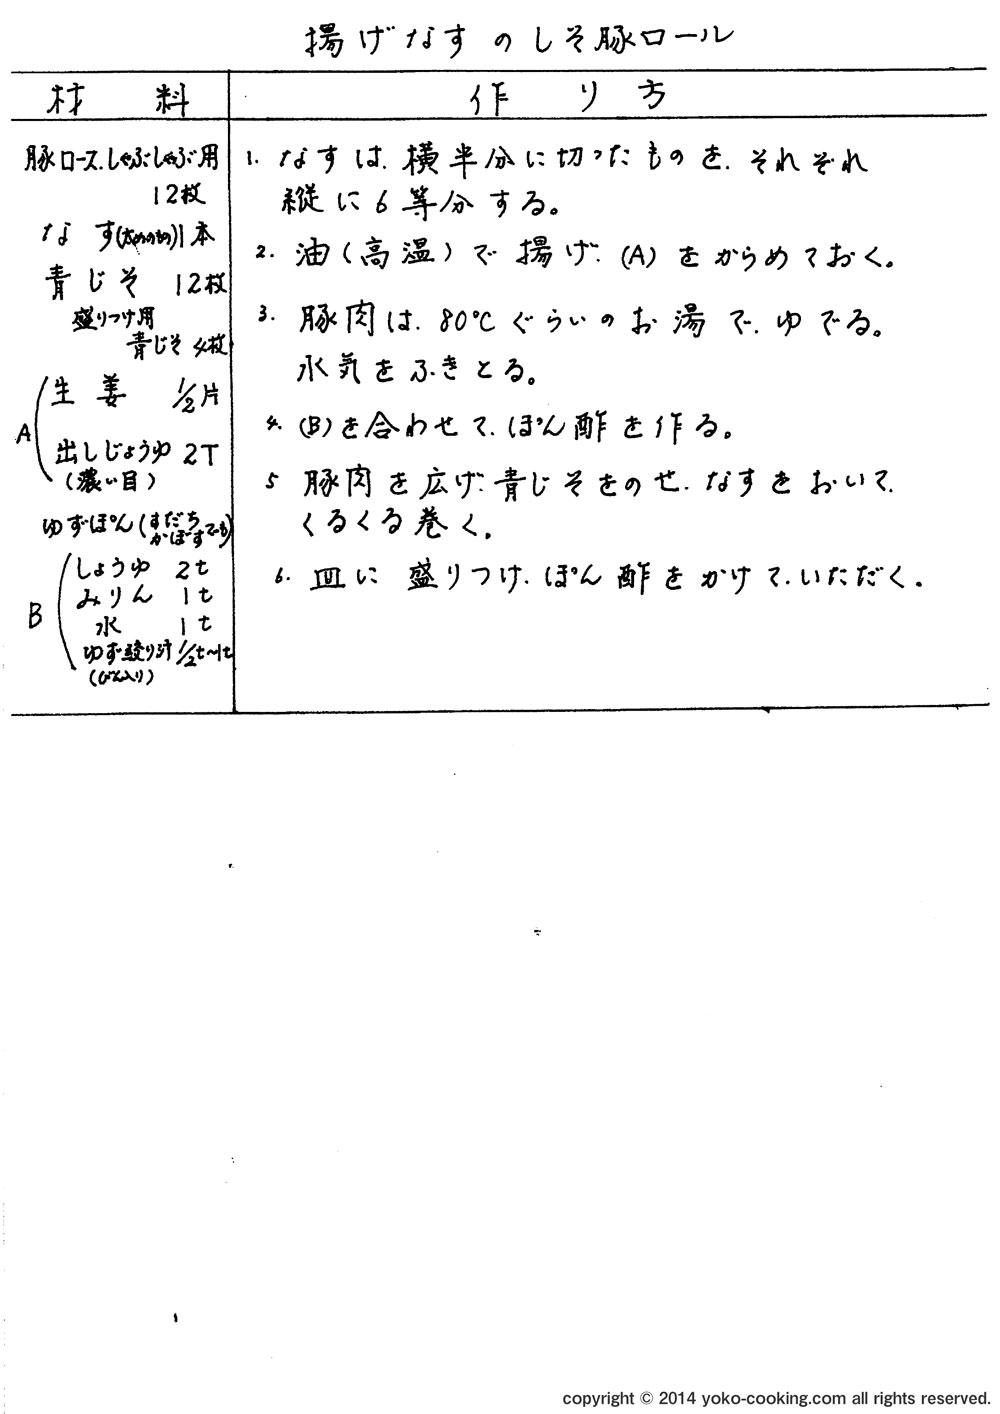 揚げなすのしそ豚ロール
材料
作り方
豚ロース、しゃぶしゃぶ用
12枚
なす(太めのもの)1本
青じそ 12枚
盛りつけ用
青じそ 4枚
A
生姜 1/2片
出しじょうゆ 2T
(濃い目)
ゆずぽん(すだち
かぼすでも)
B
しょうゆ 2t
みりん 1t
水 1t
ゆず絞り汁 1/2t~1t
(びん入り)
1. なすは、横半分に切ったものを、それぞれ
縦に6等分する。
2. 油(高温)で揚げ、(A)をからめておく。
3. 豚肉は、80℃ぐらいのお湯で、ゆでる。
水気をふきとる。
4. (B)を合わせて、ぽん酢を作る。
5 豚肉を広げ、青じそをのせ、なすをおいて、
くるくる巻く。
6. 皿に盛りつけ、ぽん酢をかけて、いただく。
copyright © 2014 yoko-cooking.com all rights reserved.